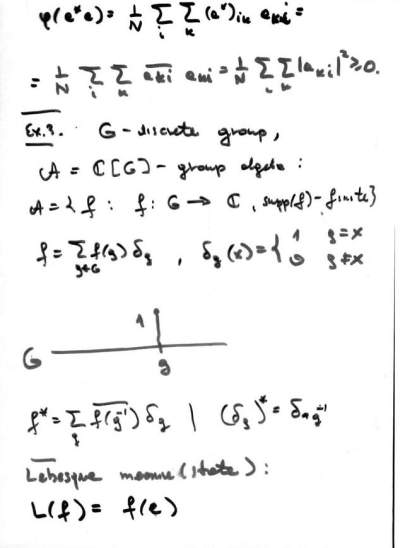 φ(a*a) = 1/N Σ_i Σ_k (a*)_{ik} a_{ki} =
= 1/N Σ_i Σ_k \overline{a_{ki}} a_{ki} = 1/N Σ_i Σ_k |a_{ki}|² ≥ 0.
Ex.3. G - discrete group,
A = ℂ[G] - group algebra :
A = { f : f: G → ℂ, supp(f) - finite}
f = Σ_{g∈G} f(g) δ_g , δ_g(x) = { 1 g=x
0 g≠x
1
G
g
f* = Σ_g \overline{f(g⁻¹)} δ_g | (δ_g)* = δ_{g⁻¹}
Lebesgue (state) :
L(f) = f(e)